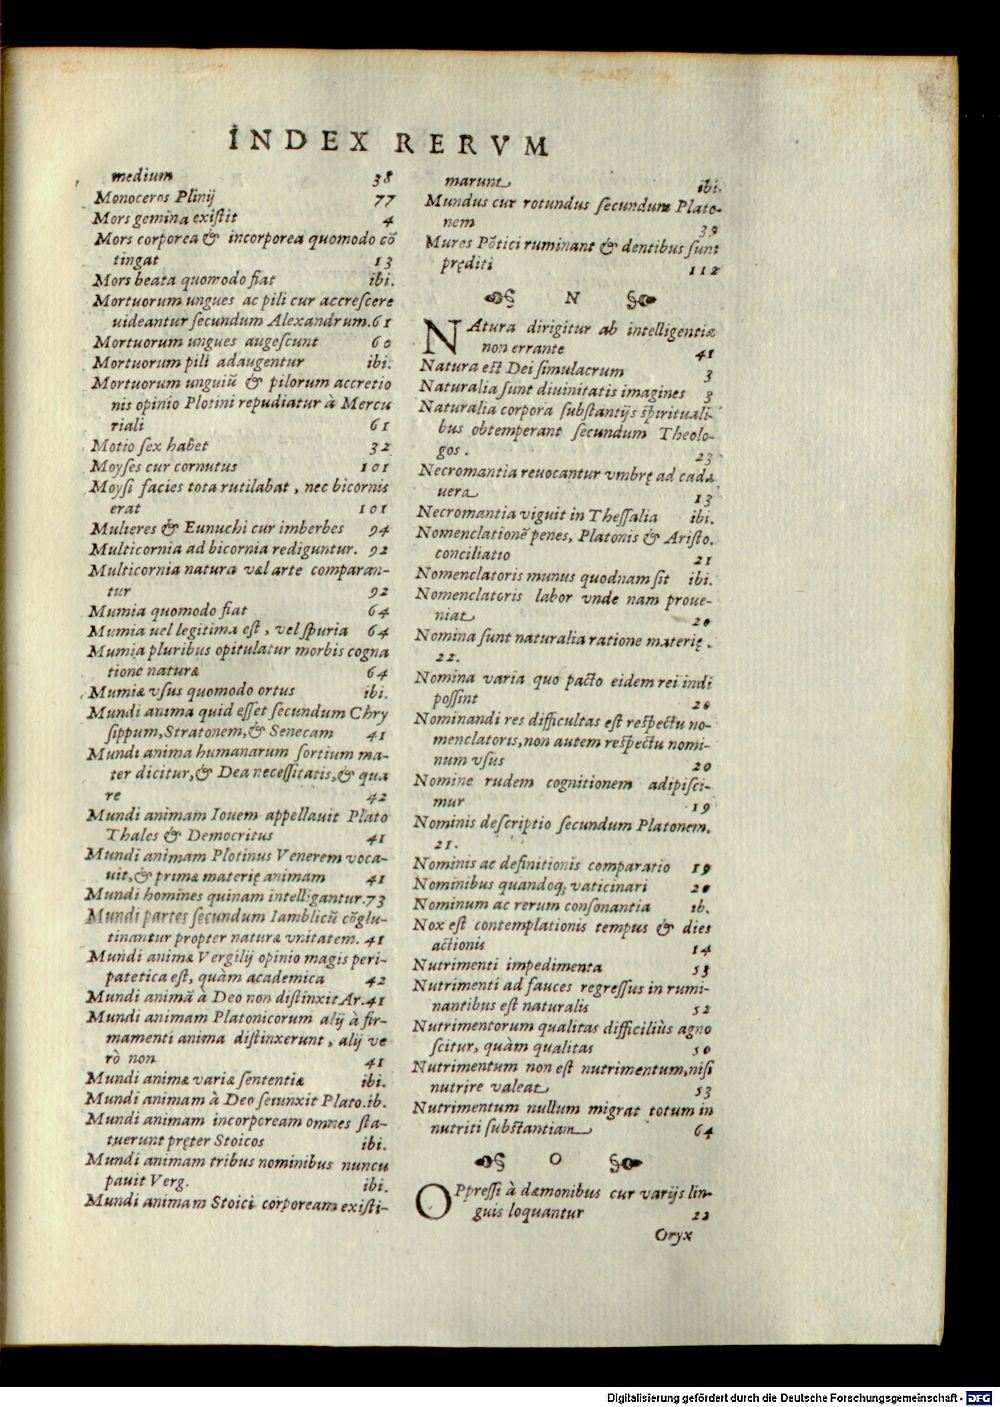 INDEX RERVM
medium 38
Monoceros Plinij 77
Mors gemina exiſtit 4
Mors corporea & incorporea quomodo cõ
tingat 13
Mors beata quomodo fiat ibi.
Mortuorum ungues ac pili cur accreſcere
uideantur ſecundum Alexandrum. 61
Mortuorum ungues augeſcunt 60
Mortuorum pili adaugentur ibi.
Mortuorum unguiũ & pilorum accretio
nis opinio Plotini repudiatur à Mercu
riali 61
Motio ſex habet 32
Moyſes cur cornutus 101
Moyſi facies tota rutilabat, nec bicornis
erat 101
Mulieres & Eunuchi cur imberbes 94
Multicornia ad bicornia rediguntur. 92
Multicornia natura vel arte comparan-
tur 92
Mumia quomodo fiat 64
Mumia uel legitima eſt, vel ſpuria 64
Mumia pluribus opitulatur morbis cogna
tione naturæ 64
Mumiæ vſus quomodo ortus ibi.
Mundi anima quid eſſet ſecundum Chry
ſippum, Stratonem, & Senecam 41
Mundi anima humanarum ſortium ma-
ter dicitur, & Dea neceſſitatis, & qua
re 42
Mundi animam Iouem appellauit Plato
Thales & Democritus 41
Mundi animam Plotinus Venerem voca-
uit, & primæ materię animam 41
Mundi homines quinam intelligantur. 73
Mundi partes ſecundum Iamblicũ cõglu-
tinantur propter naturæ vnitatem. 41
Mundi animæ Vergilij opinio magis peri-
patetica eſt, quàm academica 42
Mundi animã à Deo non diſtinxit Ar. 41
Mundi animam Platonicorum alij à fir-
mamenti anima diſtinxerunt, alij ve
rò non 41
Mundi animæ variæ ſententiæ ibi.
Mundi animam à Deo ſeiunxit Plato. ib.
Mundi animam incorpoream omnes ſta-
tuerunt pręter Stoicos ibi.
Mundi animam tribus nominibus nuncu
pauit Verg. ibi.
Mundi animam Stoici corpoream exiſti-
marunt ibi.
Mundus cur rotundus ſecundum Plato-
nem 39
Mures Põtici ruminant & dentibus ſunt
pręditi 112
N
NAtura dirigitur ab intelligentia
non errante 41
Natura eſt Dei ſimulacrum 3
Naturalia ſunt diuinitatis imagines 3
Naturalia corpora ſubſtantijs ſpirituali-
bus obtemperant ſecundum Theolo-
gos. 23
Necromantia reuocantur vmbrę ad cada
uera 13
Necromantia viguit in Theſſalia ibi.
Nomenclationẽ penes, Platonis & Ariſto.
conciliatio 21
Nomenclatoris munus quodnam ſit ibi.
Nomenclatoris labor vnde nam proue-
niat 20
Nomina ſunt naturalia ratione materię.
22.
Nomina varia quo pacto eidem rei indi
poſſint 20
Nominandi res difficultas eſt reſpectu no-
menclatoris, non autem reſpectu nomi-
num vſus 20
Nomine rudem cognitionem adipiſci-
mur 19
Nominis deſcriptio ſecundum Platonem.
21.
Nominis ac definitionis comparatio 19
Nominibus quandoq; vaticinari 20
Nominum ac rerum conſonantia ib.
Nox eſt contemplationis tempus & dies
actionis 14
Nutrimenti impedimenta 53
Nutrimenti ad fauces regreſſus in rumi-
nantibus eſt naturalis 52
Nutrimentorum qualitas difficiliùs agno
ſcitur, quàm qualitas 50
Nutrimentum non eſt nutrimentum, niſi
nutrire valeat 53
Nutrimentum nullum migrat totum in
nutriti ſubſtantiam 64
O
OPpreſſi à dæmonibus cur varijs lin-
guis loquantur 22
Oryx
Digitalisierung gefördert durch die Deutsche Forschungsgemeinschaft - DFG